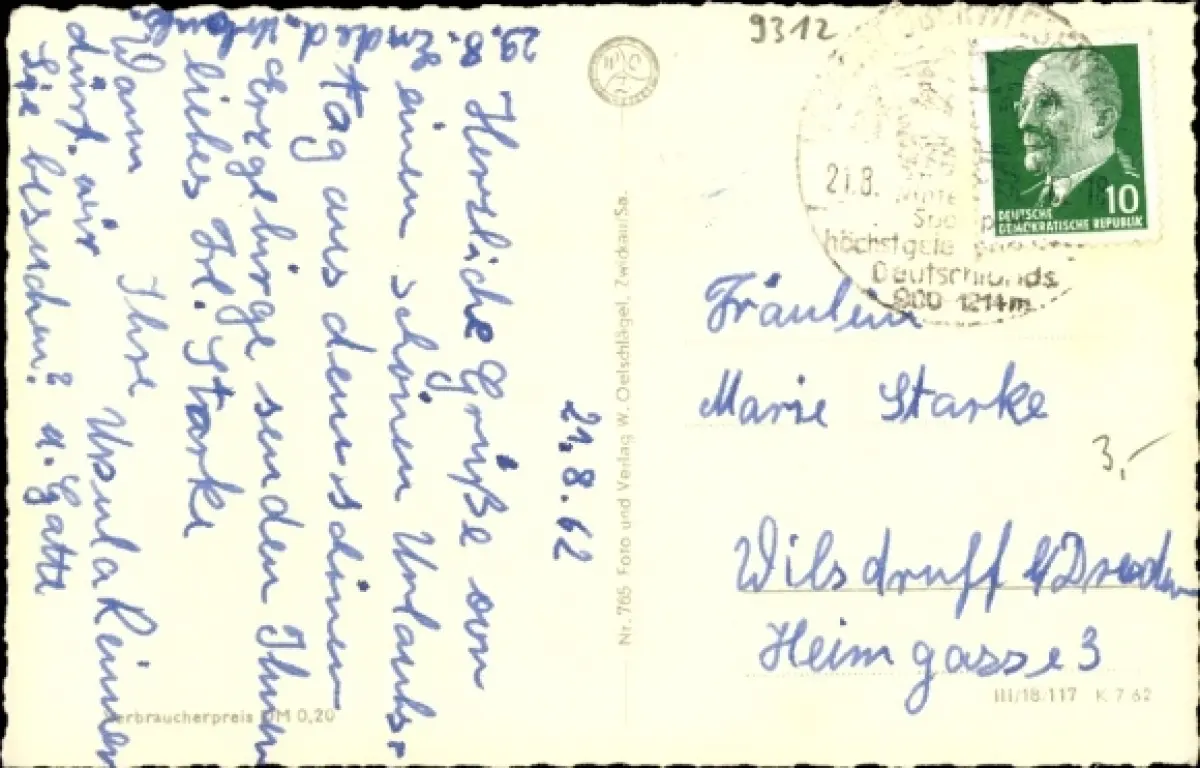 29.8. Ende d. Urlaubs.
Herzliche Grüße von
einem schönen Urlaubs-
tag aus dem schönen
Erzgebirge senden Ihnen
liebes Frl. Starke
Ihre Ursula Reimer
u. Gatte
Wann
dürf. wir
Sie besuchen?
21.8.62
Nr. 765 Foto und Verlag W. Oelschlägel, Zwickau/Sa.
Verbraucherpreis DM 0,20
9312
21.8.
18
höchstgele
Deutschlands
900 1214m
10
DEUTSCHE
DEMOKRATISCHE REPUBLIK
Fräulein
Marie Starke
3,-
Wilsdruff b/Dresden
Heimgasse 3
III/18/117 K 7 62